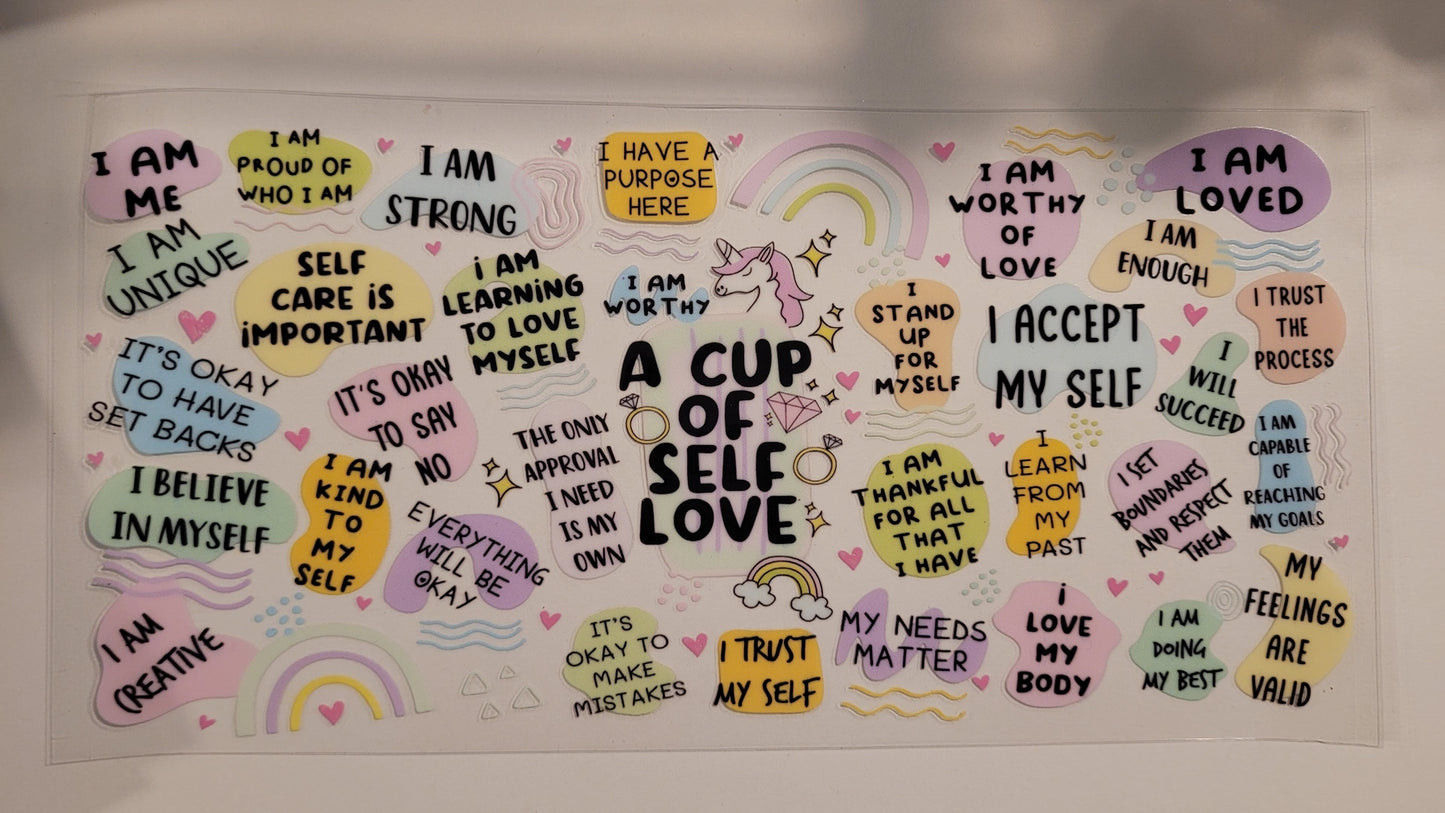 I AM
ME
I AM
PROUD OF
WHO I AM
I AM
STRONG
I HAVE A
PURPOSE
HERE
I AM
WORTHY
OF
LOVE
I AM
LOVED
I AM
UNIQUE
SELF
CARE iS
iMPORTANT
i AM
LEARNiNG
TO LOVE
MYSELF
I AM
WORTHY
I
STAND
UP
FOR
MYSELF
I ACCEPT
MY SELF
I AM
ENOUGH
I TRUST
THE
PROCESS
IT'S OKAY
TO HAVE
SET BACKS
IT'S OKAY
TO SAY
NO
THE ONLY
APPROVAL
I NEED
IS MY
OWN
A CUP
OF
SELF
LOVE
I
WILL
SUCCEED
I AM
CAPABLE
OF
REACHING
MY GOALS
I BELIEVE
IN MYSELF
I AM
KIND
TO
MY
SELF
EVERYTHING
WILL BE
OKAY
I AM
THANKFUL
FOR ALL
THAT
I HAVE
I
LEARN
FROM
MY
PAST
I SET
BOUNDARIES
AND RESPECT
THEM
I AM
CREATIVE
IT'S
OKAY TO
MAKE
MISTAKES
I TRUST
MY SELF
MY NEEDS
MATTER
i
LOVE
MY
BODY
I AM
DOING
MY BEST
MY
FEELINGS
ARE
VALID